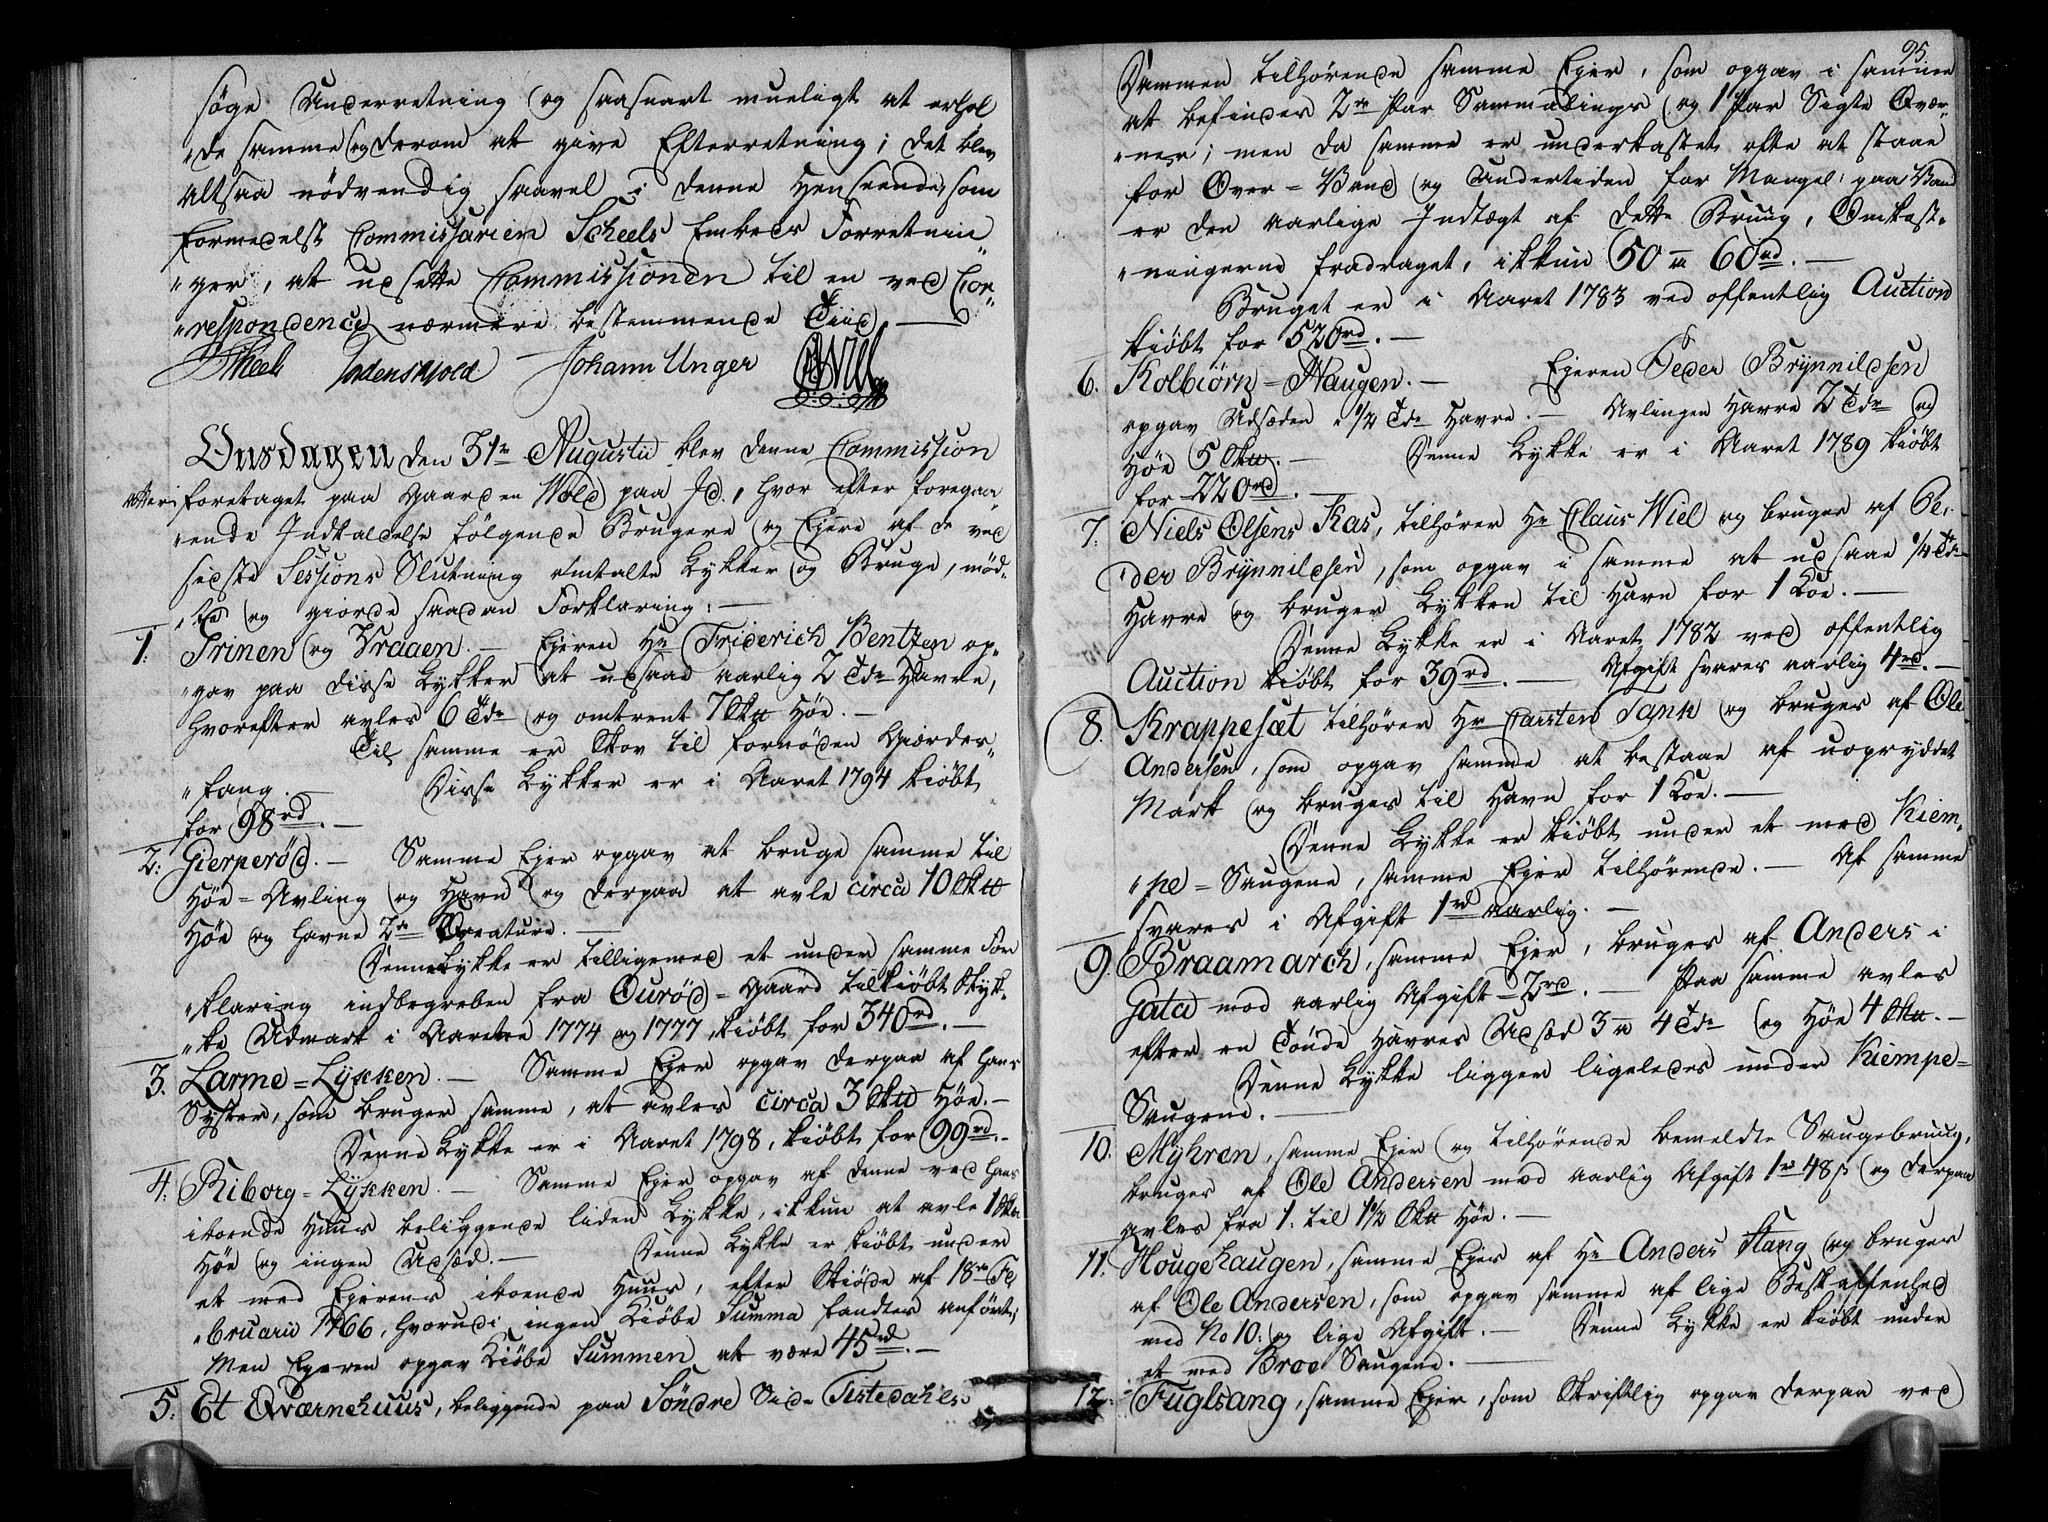 søge Underretning og saasnart mueligt at erhol
"de samme og derom at give Efterretning; det blev
altsaa nødvendig saavel i denne Henseende, som
formedelst Commissarien Scheels Embeds Forretnin
"ger, at udsætte Commissionen til en ved Cor"
"respondence nærmere bestemmende Tiid —
Scheel Tordenskjold Johann Unger CWiel
Onsdagen den 31te Augustii blev denne Commission
atter foretaget paa Gaarden Wold paa Id, hvor efter foregaa
"ende Indkaldelse følgende Brugere og Ejere af de ved
sidste Sessions Slutning omtalte Løkker og Bruge, mød"
"te og giorde saadan Forklaring: —
1. Trinen og Vraaen. — Ejeren Hr Friderich Bentzen op"
"gav paa disse Løkker at udsaae aarlig 2 Tdr Havre,
hvorefter avles 6 Tdr og omtrent 7 Skt Høe. —
Til samme er Skov til fornøden Gierdes"
"fang. — Disse Løkker er i Aaret 1794 kiøbt
for 98rd. —
2. Gierperød. — Samme Ejer opgav at bruge samme til
Høe-Avling og Havn og derpaa at avle circa 10 Skt
Høe og havne 2de Creature. —
Denne Løkke er tilligemed et under samme For
"klaring indbegreben fra Ourød-Gaard tilkiøbt Støk"
"ke Udmark i Aarene 1774 og 1777, kiøbt for 340rd. —
3. Larme-Løkken. — Samme Ejer opgav derpaa af hans
Syster, som bruger samme, at avles circa 3 Skt Høe. —
Denne Løkke er i Aaret 1798, kiøbt for 99rd. —
4. Riborg-Løkken. — Samme Ejer opgav af denne ved hans
iboende Huus beliggende liden Løkke, ikkun at avle 1 Skt
Høe og ingen Udsæd. — Denne Løkke er kiøbt under
et med Ejerens iboende Huus, efter Skiøde af 18de Fe
"bruarii 1766, hvorudi ingen Kiøbe Summa fandtes anført;
Men Ejeren opgav Kiøbe Summen at være 45rd. —
5. Et Qværnehuus, beliggende paa Søndre Side Tistedahls
95
Dammen tilhørende samme Ejer, som opgav i samme
at befindes 2de Par Sammalings og 1 Par Sigte Qvær"
"ner; men da samme er underkastet ofte at staae
for Over-Vand og Undertiden for Mangel paa Vand
er den aarlige Indtægt af dette Bruug, Omkost"
"ningerne fradraget, ikkun 50 a 60rd. —
Bruget er i Aaret 1783 ved offentlig Auction
kiøbt for 520rd. —
6. Kolbiørn-Haugen. — Ejeren Peder Brynnildsen
opgav Udsæden 1/2 Tdr Havre. — Avlingen Havre 2 Tdr og
Høe 5 Skt. — Denne Løkke er i Aaret 1789 kiøbt
for 220rd. —
7. Niels Olsens Kas, tilhører Hr Claus Wiel og bruges af Pe"
"der Brynnildsen, som opgav i samme at udsaae 1/4 Tdr
Havre og bruger Løkken til Havn for 1 Koe. —
Denne Løkke er i Aaret 1782 ved offentlig
Auction kiøbt for 39rd. — Afgift svares aarlig 4rd. —
8. Krappesæt tilhører Hr Carsten Tank og bruges af Ole
Andersen, som opgav samme at bestaae af uopryddet
Mark og bruges til Havn for 1 Koe. —
Denne Løkke er kiøbt under et med Kiem"
"pe-Saugene, samme Ejer tilhørende. — Af samme
svares i Afgift 1rd aarlig. —
9. Braamarch, samme Ejer, bruges af Anders i
Gata mod aarlig Afgift 2rd. — Paa samme avles
efter en Tønde Havres Udsæd 3 a 4 Tdr og Høe 4 Skt. —
Denne Løkke ligger ligeledes under Kiempe-
Saugene. —
10. Myhren, samme Ejer og tilhørende bemeldte Saugebruug,
bruges af Ole Andersen mod aarlig Afgift 1rd 48ß og derpaa
avles fra 1. til 1 1/2 Skt Høe. —
11. Hougehaugen, samme Ejer af Hr Anders Stang og bruges
af Ole Andersen, som opgav samme af lige Beskaffenhed
med No 10: og lige Afgift. — Denne Løkke er kiøbt under
et med Broe Saugene. —
12. Fuglsang, samme Ejer, som Skriftlig opgav derpaa ved